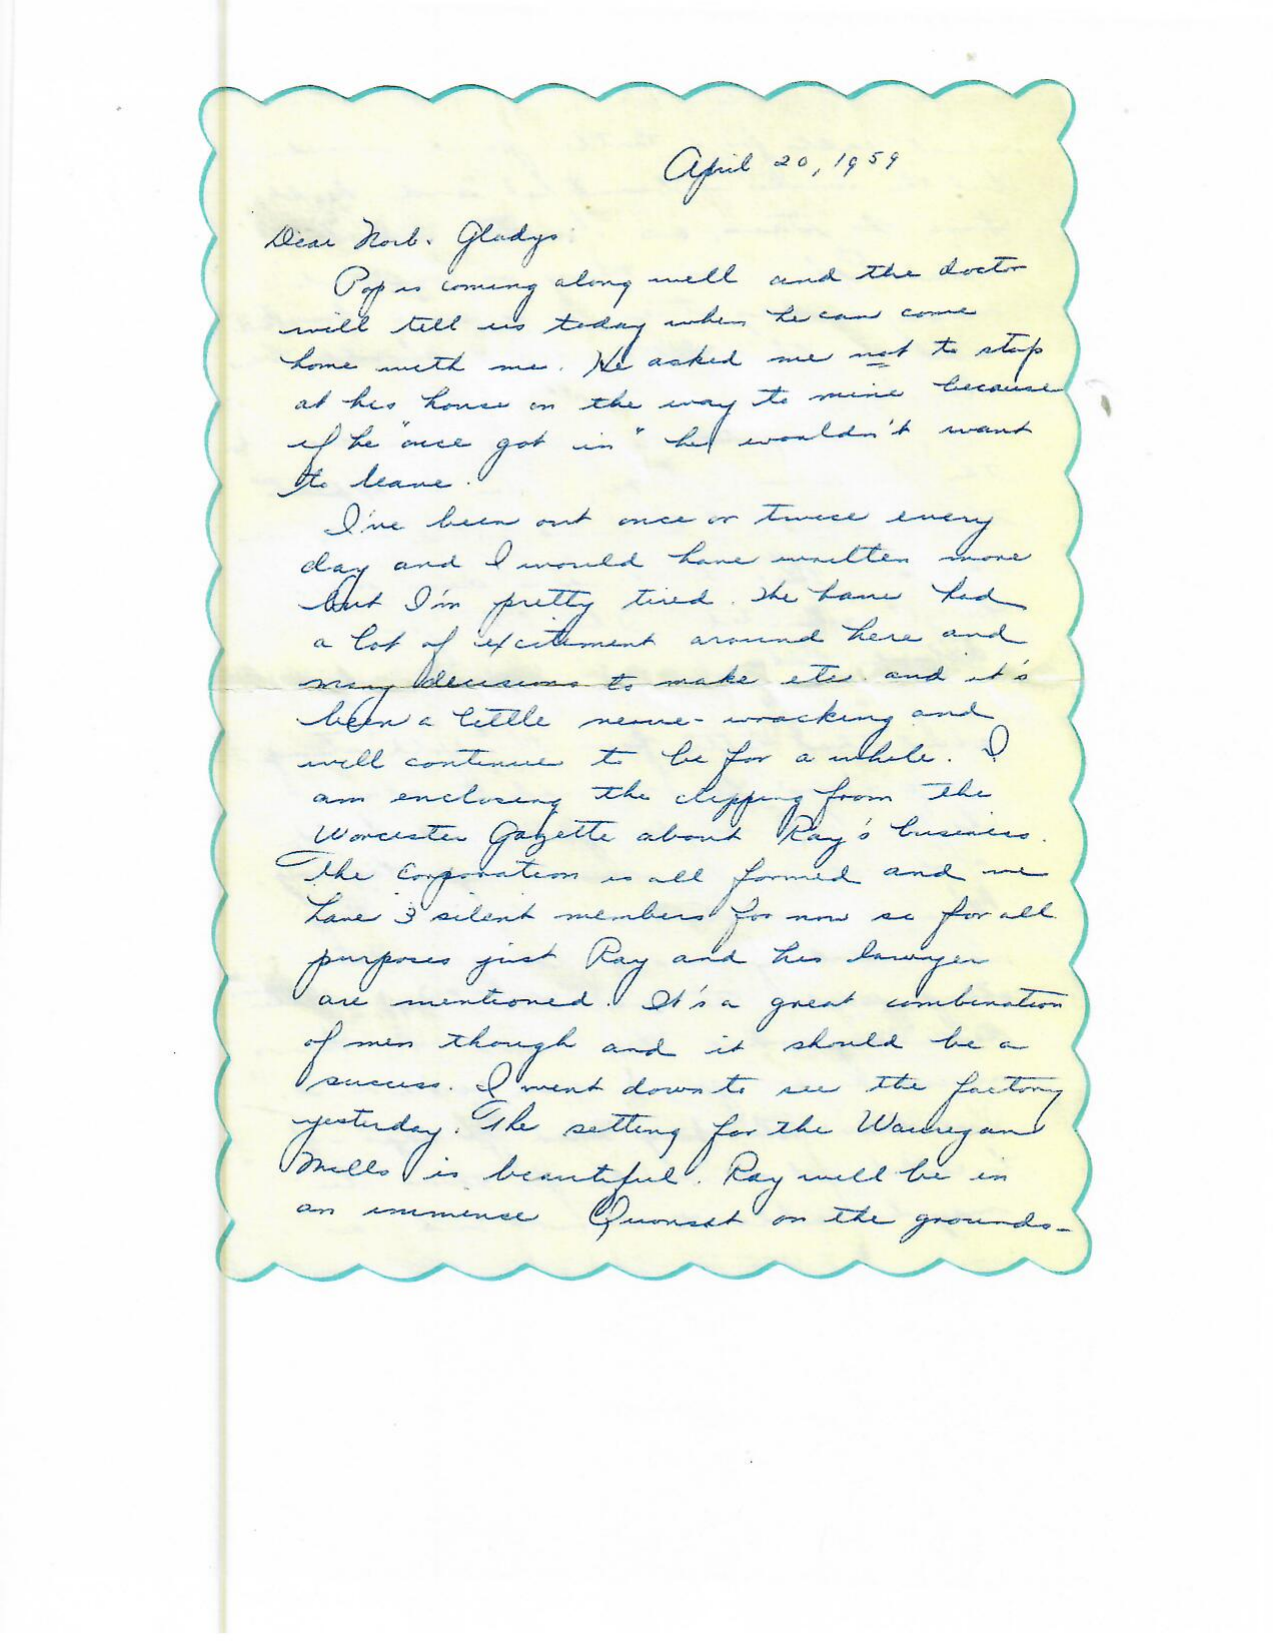 April 20, 1959
Dear Norb. Gladys
Pop is coming along well and the doctor
will tell us today when he can come
home with me. He asked me not to stop
at his house on the way to mine because
if he "once got in" he wouldn't want
to leave.
I've been out once or twice every
day and I would have written more
but I'm pretty tired. We have had
a lot of excitement around here and
many decisions to make etc. and it's
been a little nerve-wracking and
will continue to be for a while. I
am enclosing the clipping from the
Worcester Gazette about Ray's business.
The Corporation is all formed and we
have 3 silent members for now so for all
purposes just Ray and his lawyer
are mentioned. It's a great combination
of men though and it should be a
success. I went down to see the factory
yesterday. The setting for the Wauregan
Mills is beautiful. Ray will be in
an immense Quonset on the grounds-